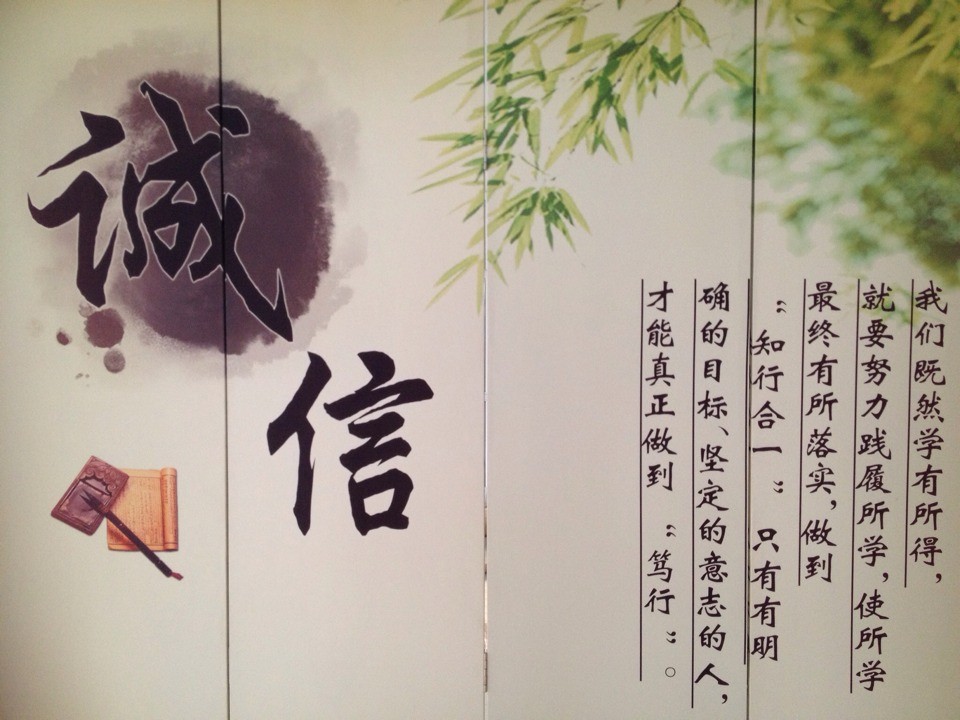 誠信
我们既然学有所得，
就要努力践履所学，使所学
最终有所落实，做到
“知行合一”只有有明
确的目标、坚定的意志的人，
才能真正做到“笃行”。